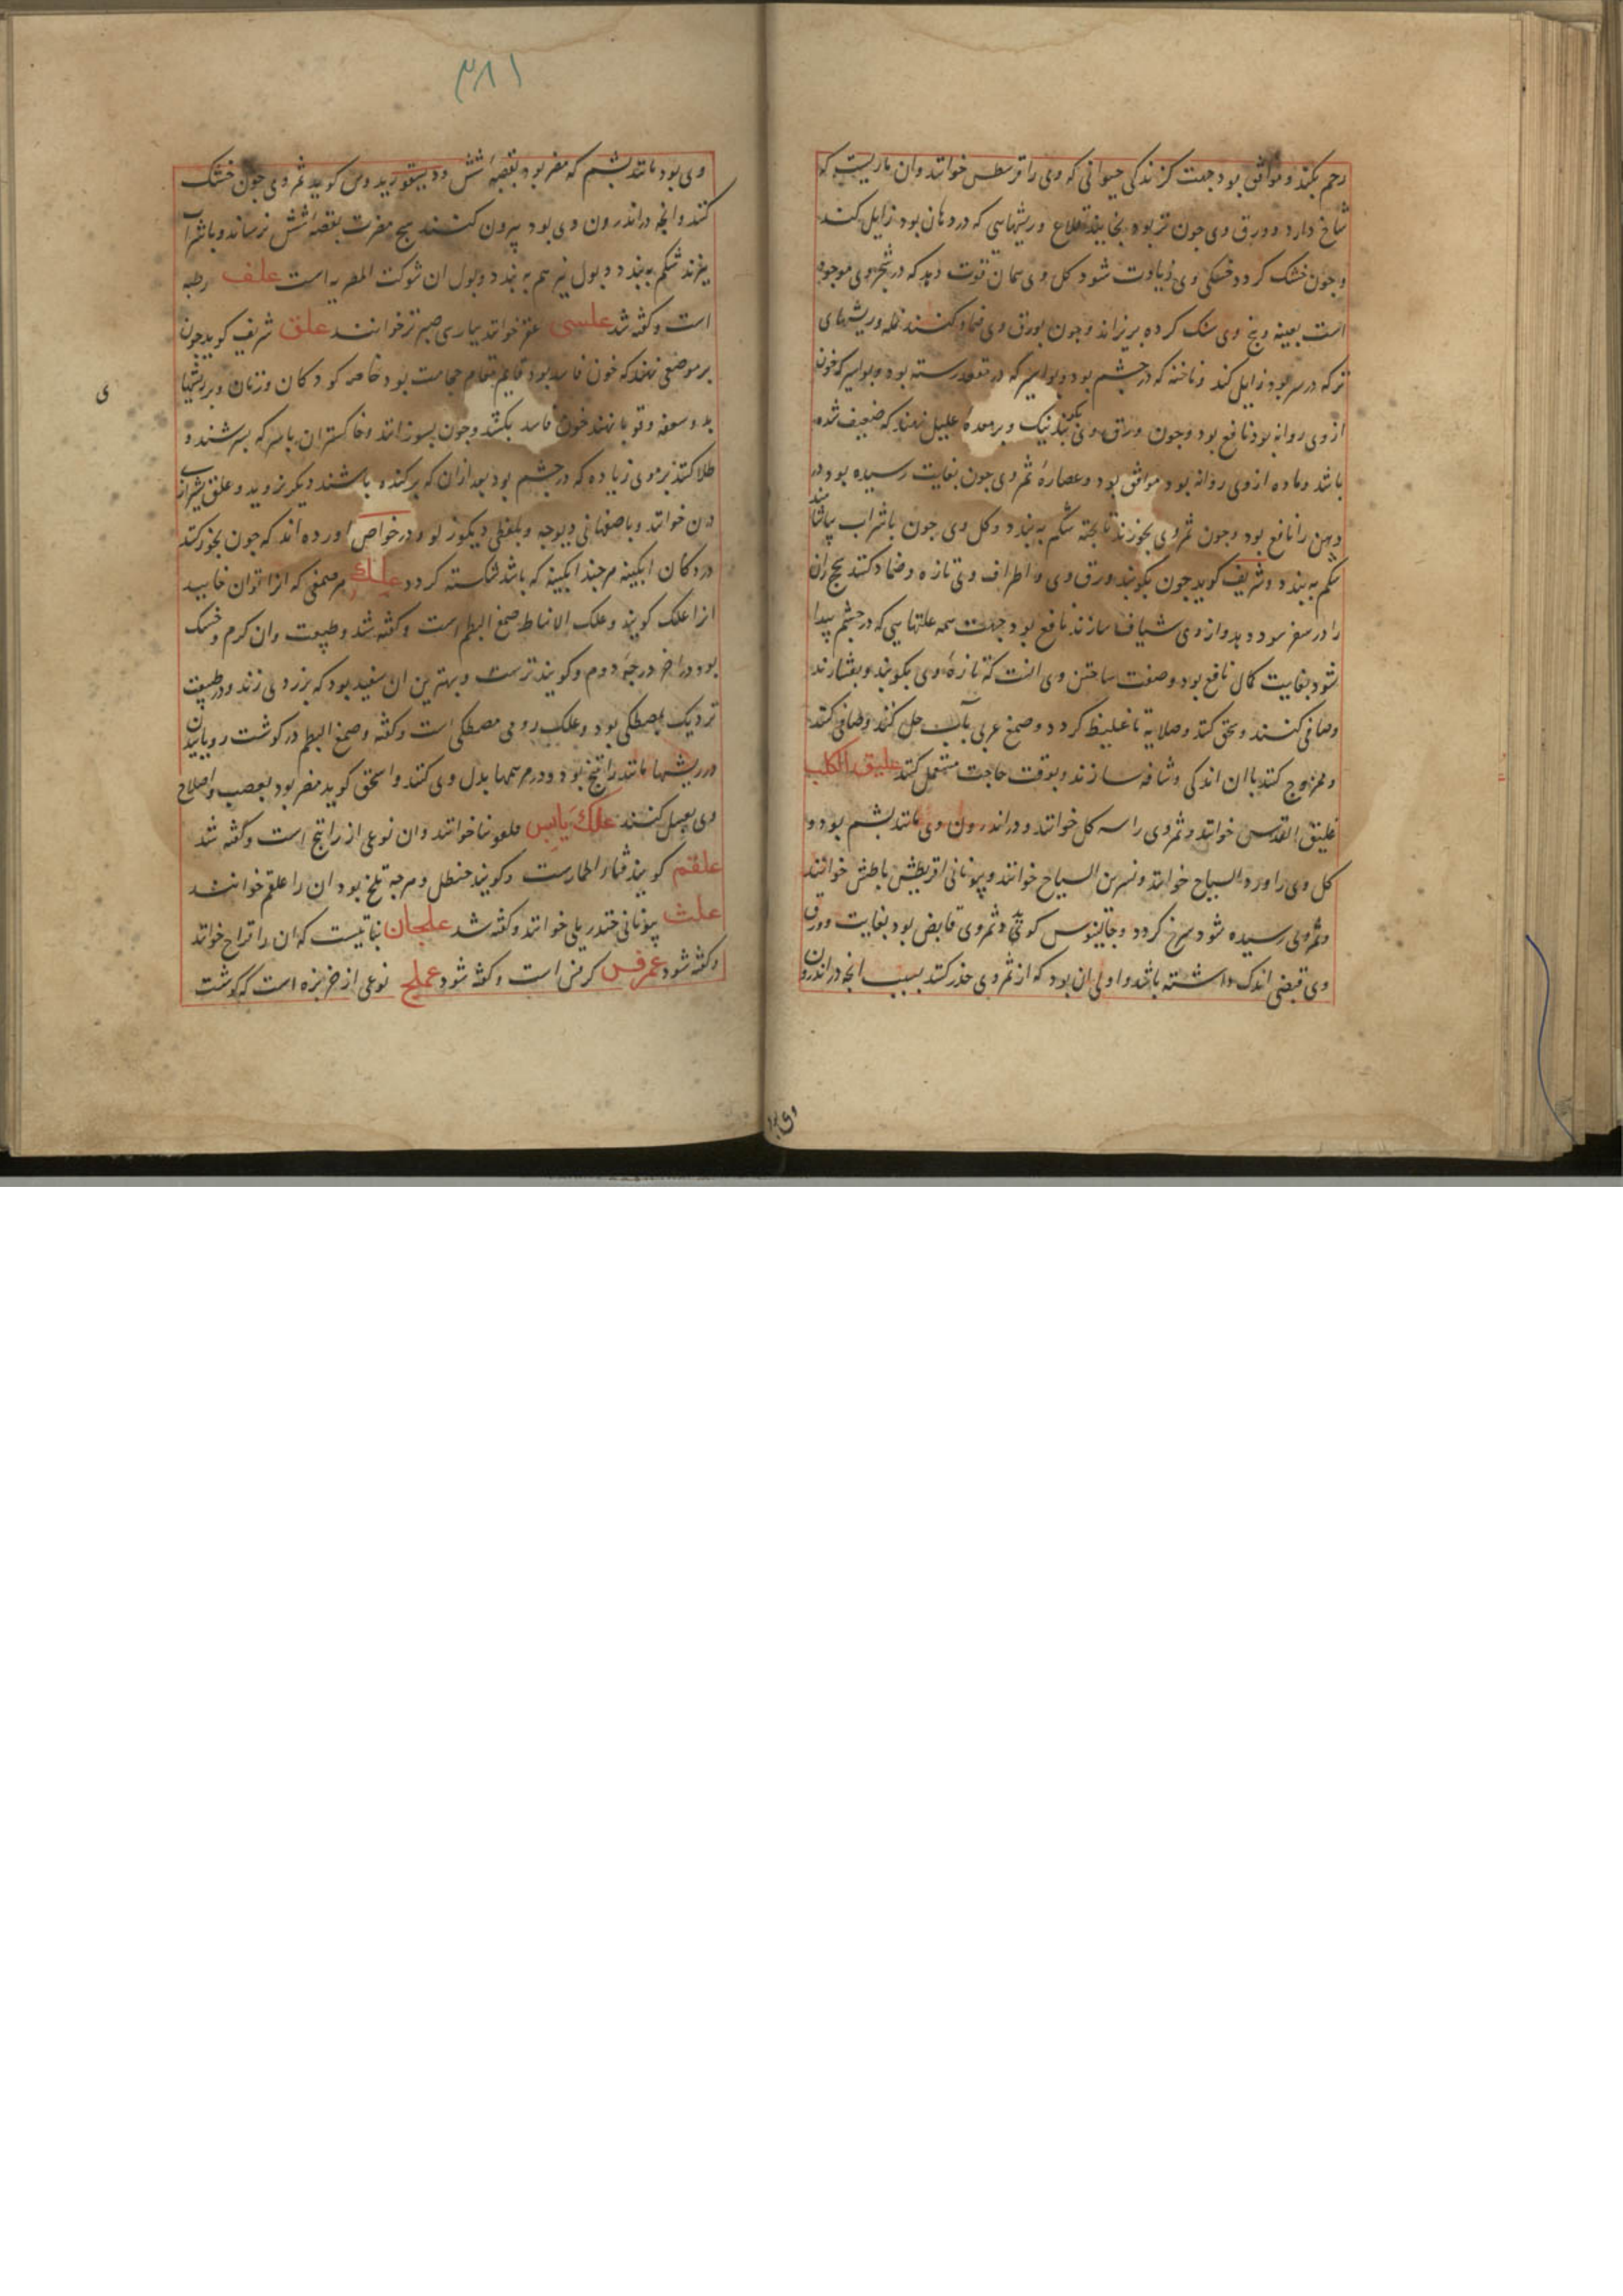 رحم بکند و موافق بود جهت کزندکی حیوانی که وی را قرسطس خوانند وان ماریست که
شاخ دارد و ورق وی جون تر بود بخایند قلاع و ریشهایی که در دهان بود زایل کند
و جون خشک کردد خشکی وی زیادت شود کل وی همان قوت دهد که در شجر وی موجود
است بعینه و بیخ وی سنک کرده بریزاند و جون بورق وی ضماد کنند نمله و ریشهای
تر که در سر بود زایل کند و ناخنه که در جشم بود و بواسیر که در مقعد رسته بود و بواسیر که خون
از وی روانه بود نافع بود و جون ورق وی بکوبند نیک و بر معده علیل نهند که ضعیف شده
باشد و ماده از وی روانه بود موافق بود و عصاره ثمر وی جون بغایت رسیده بود درد
دهن را نافع بود و جون ثمر وی بخورند نابخته شکم به بندد و کل وی جون با شراب بیاشامند
شکم به بندد و شریف کوید جون بکوبند ورق وی و اطراف وی تازه و ضماد کنند بیج ران
را در سفر سود دهد و از وی شیاف سازند نافع بود جهت همه علتهایی که در جشم پیدا
شود بغایت کمال نافع بود و صفت ساختن وی انست که تازه وی بکوبند و بفشارند
وصافی کنند و سحق کنند و صلایه تا غلیظ کردد و صمغ عربی بآب حل کنند و صافی کنند
و ممزوج کنند باان اندکی و شافه سازند و بوقت حاجت مستعمل کنند علیق الکلب
علیق القدس خوانند و ثمر وی را سه کل خوانند و در اندرون وی مانند بشم بود و
کل وی را ورد السیاح خوانند و نسرین السیاج خوانند و بیونانی اقریطش باطش خوانند
و ثمر وی رسیده شود سرخ کردد و جالینوس کوید ثمر وی قابض بود بغایت و ورق
وی قبضی اندک داشته باشد و اولی ان بود که از ثمر وی حذر کنند بسبب انجه در اندرون
وی بود
۳۸۱
وی بود مانند بشم که مضر بود بقصبه شش و دیسقوریدوس کوید ثمر وی جون خشک
کنند و انجه در اندرون وی بود بیرون کنند هیج مضرت بقصبه شش نرساند و با شراب
بپزند شکم به بندد و بول نیز هم به بندد و بول ان شوکت المصریه است علف رطبه
است و کفته شد علسی مقر خوانند بپارسی صبر زرد خوانند علق شریف کوید جون
بر موضعی نهند که خون فاسد بود قایم مقام حجامت بود خاصه کودکان و زنان و بر ریشها
بد و سعفه و قوبا نهند خون فاسد بکشد و جون بسوزانند و خاکستر ان باسرکه بسرشند و
طلا کنند بر موی زیاده که در جشم بود بعد ازان که برکنده باشند دیکر نروید و علق بشیرازی
درن خوانند و باصفهانی دیوجه و بلفظی دیکر زلو و در خواص اورده اند که جون بخور کنند
در دکان ابکینه هر جند ابکینه که باشد شکسته کردد علک هر صمغی که انرا توان خایید
انرا علک کویند و علک الانباط صمغ البطم است و کفته شد و طبیعت وان کرم و خشک
بود در اخر درجه دوم و کویند ترست و بهترین ان سفید بود که بزردی زند و در طبیعت
نزدیک بمصطکی بود و علک رومی مصطکی است و کفته و صمغ البطم در کوشت رویانیدن
در ریشها مانند راتینج بود و در مرهمها بدل وی کنند و اسحق کوید مضر بود بعصب و اصلاح
وی بعسل کنند علک یابس قلفونیا خوانند وان نوعی از راتینج است و کفته شد
علقم کویند قثاء الحمارست و کویند حنظل و هرجه تلخ بود ان را علقم خوانند
علث بیونانی خندریلی خوانند و کفته شد علجان نباتیست که ان را قراح خوانند
و کفته شود عمرفس کرفس است و کفته شود عملج نوعی از خربزه است که کوشت
ی